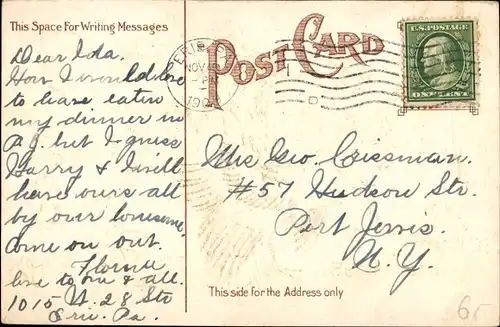 This Space For Writing Messages
POST CARD
U.S. POSTAGE
ONE CENT
ERIE
NOV
190
D
Dear Ida.
How I would like
to have eaten
my dinner in
P.J. but I guess
Harry & I will
have ours all
by over lonesome.
Come on out.
love to one & all.
1015 W. 28 Str
Erie. Pa.
Mrs Geo. Cressman.
#57 Hudson Str.
Port Jervis.
N.Y.
This side for the Address only
65